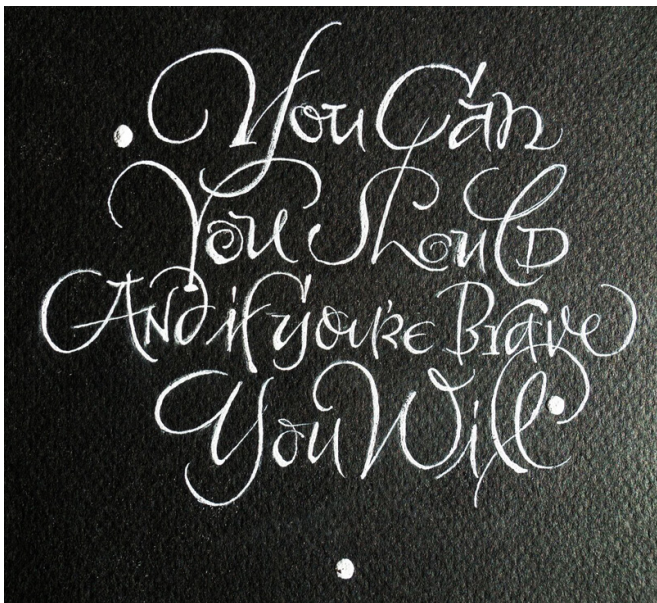 You Can
You Should
And if you're Brave
You Will